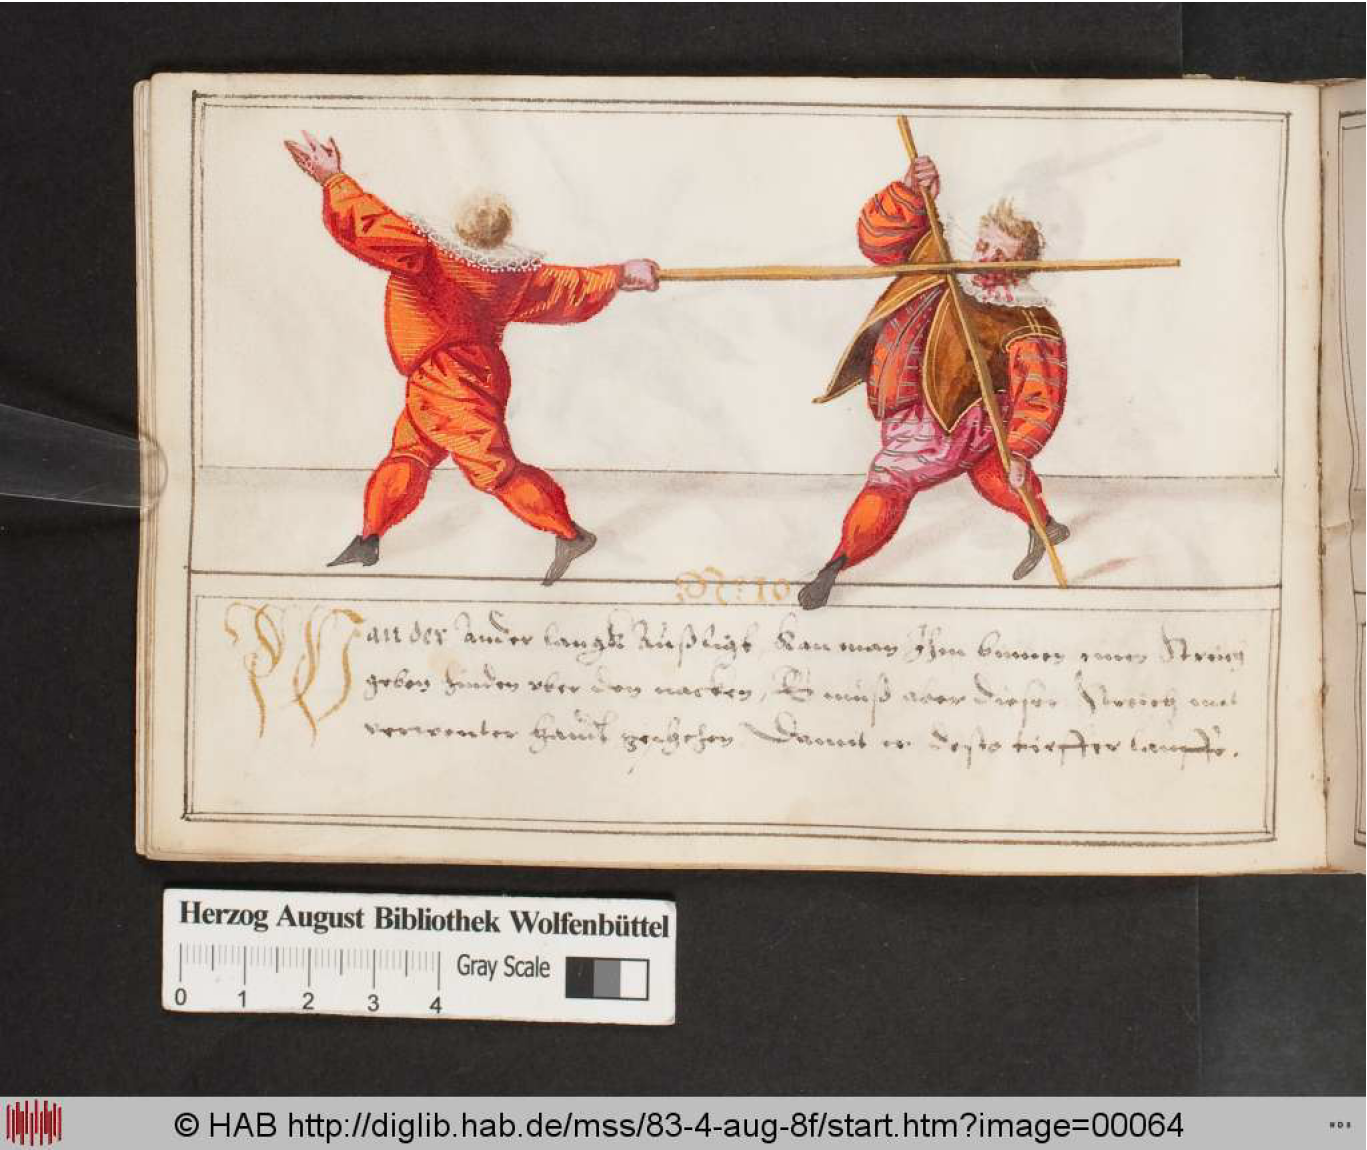 N: 10
Wan der Ander langk Außligt kan man Ihm binnen einen Streich
geben hinden uber den nacken, Es muß aber dieser Streich mit
verwenter handt geschehen Damit er desto tieffer lauffe.
Herzog August Bibliothek Wolfenbüttel
0 1 2 3 4 Gray Scale
© HAB http://diglib.hab.de/mss/83-4-aug-8f/start.htm?image=00064